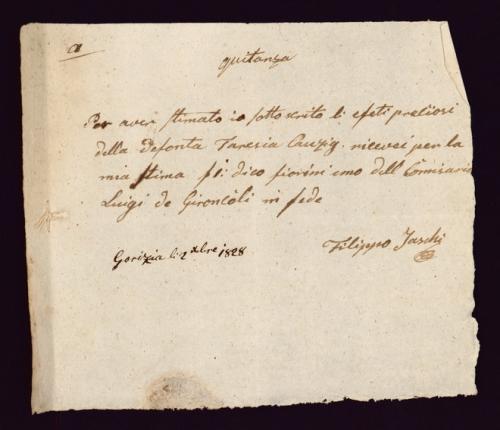 a
quitanza
Per aver stimato io sottoscrito li efeti preziosi
della Defonta Taresia Cauzig. ricevei per la
mia stima f 1: dico fiorini uno dell Comisario
Luigi de Gironcoli in fede
Gorizia li 2 xbre 1828
Filippo Jaschi